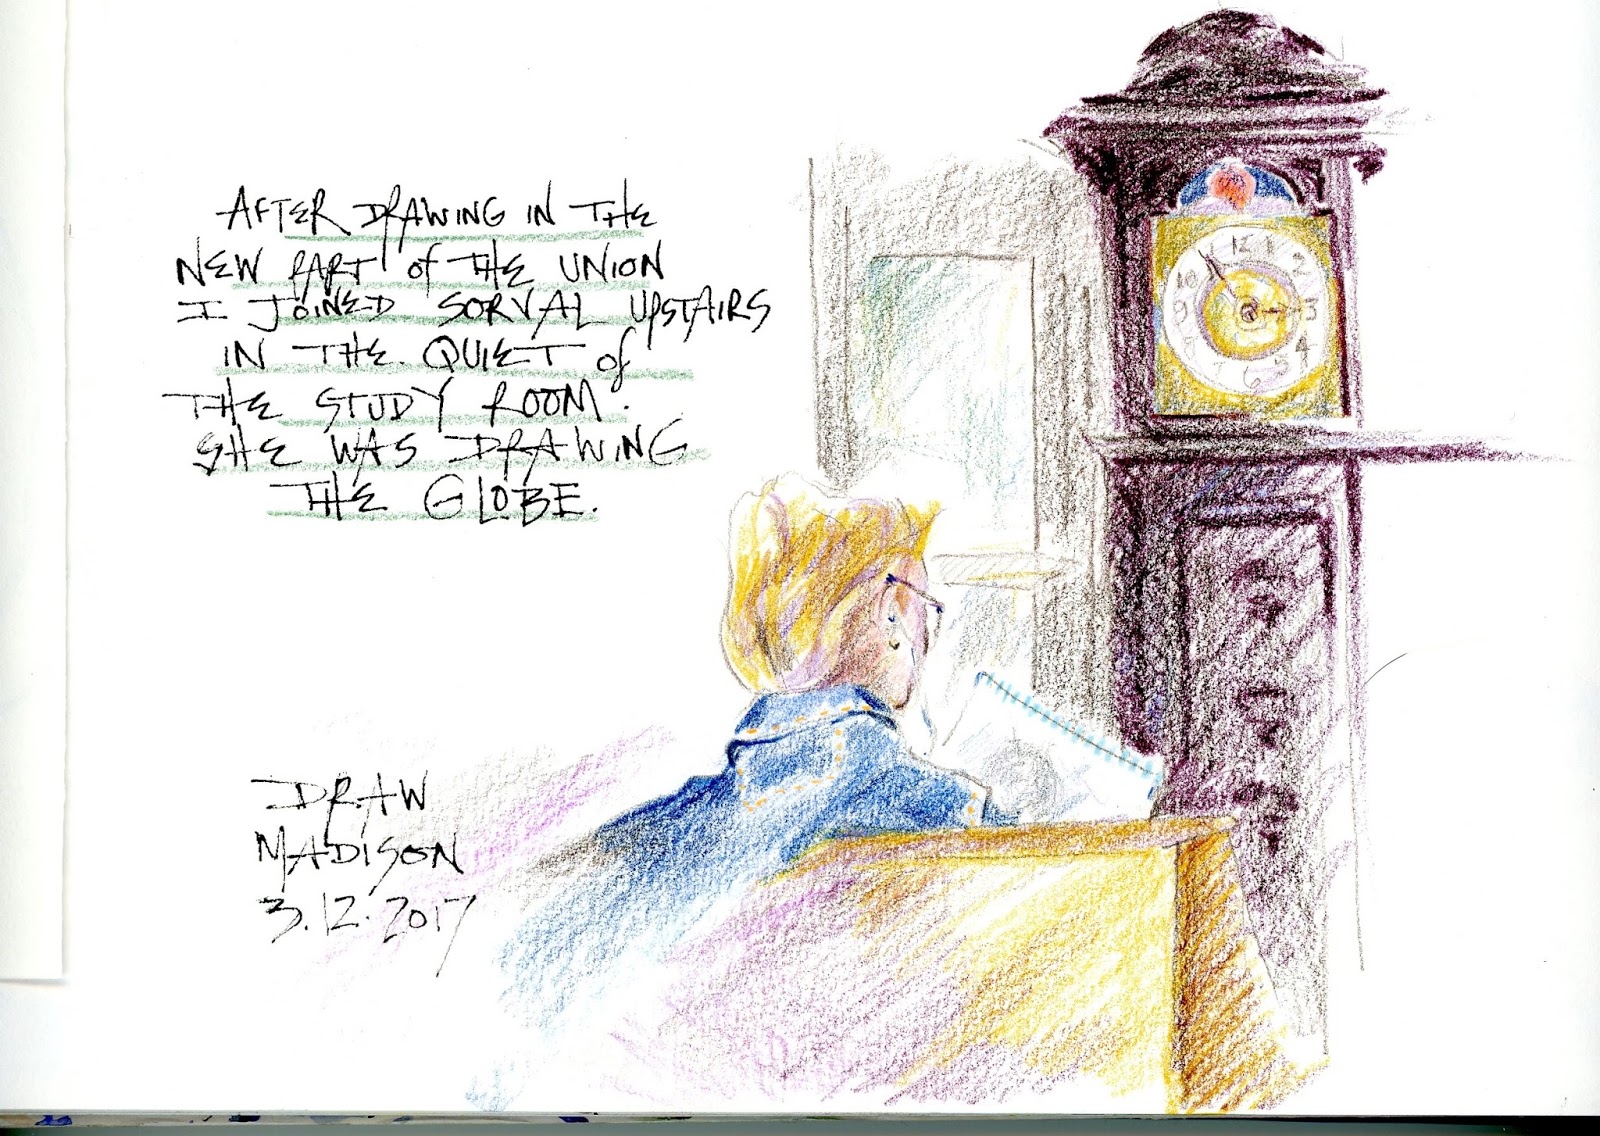 AFTER DRAWING IN THE
NEW PART of THE UNION
I JOINED SORVAL UPSTAIRS
IN THE QUIET of
THE STUDY ROOM.
SHE WAS DRAWING
THE GLOBE.
12 1 2 3 4 5 6 9 10
DRAW
MADISON
3.12.2017